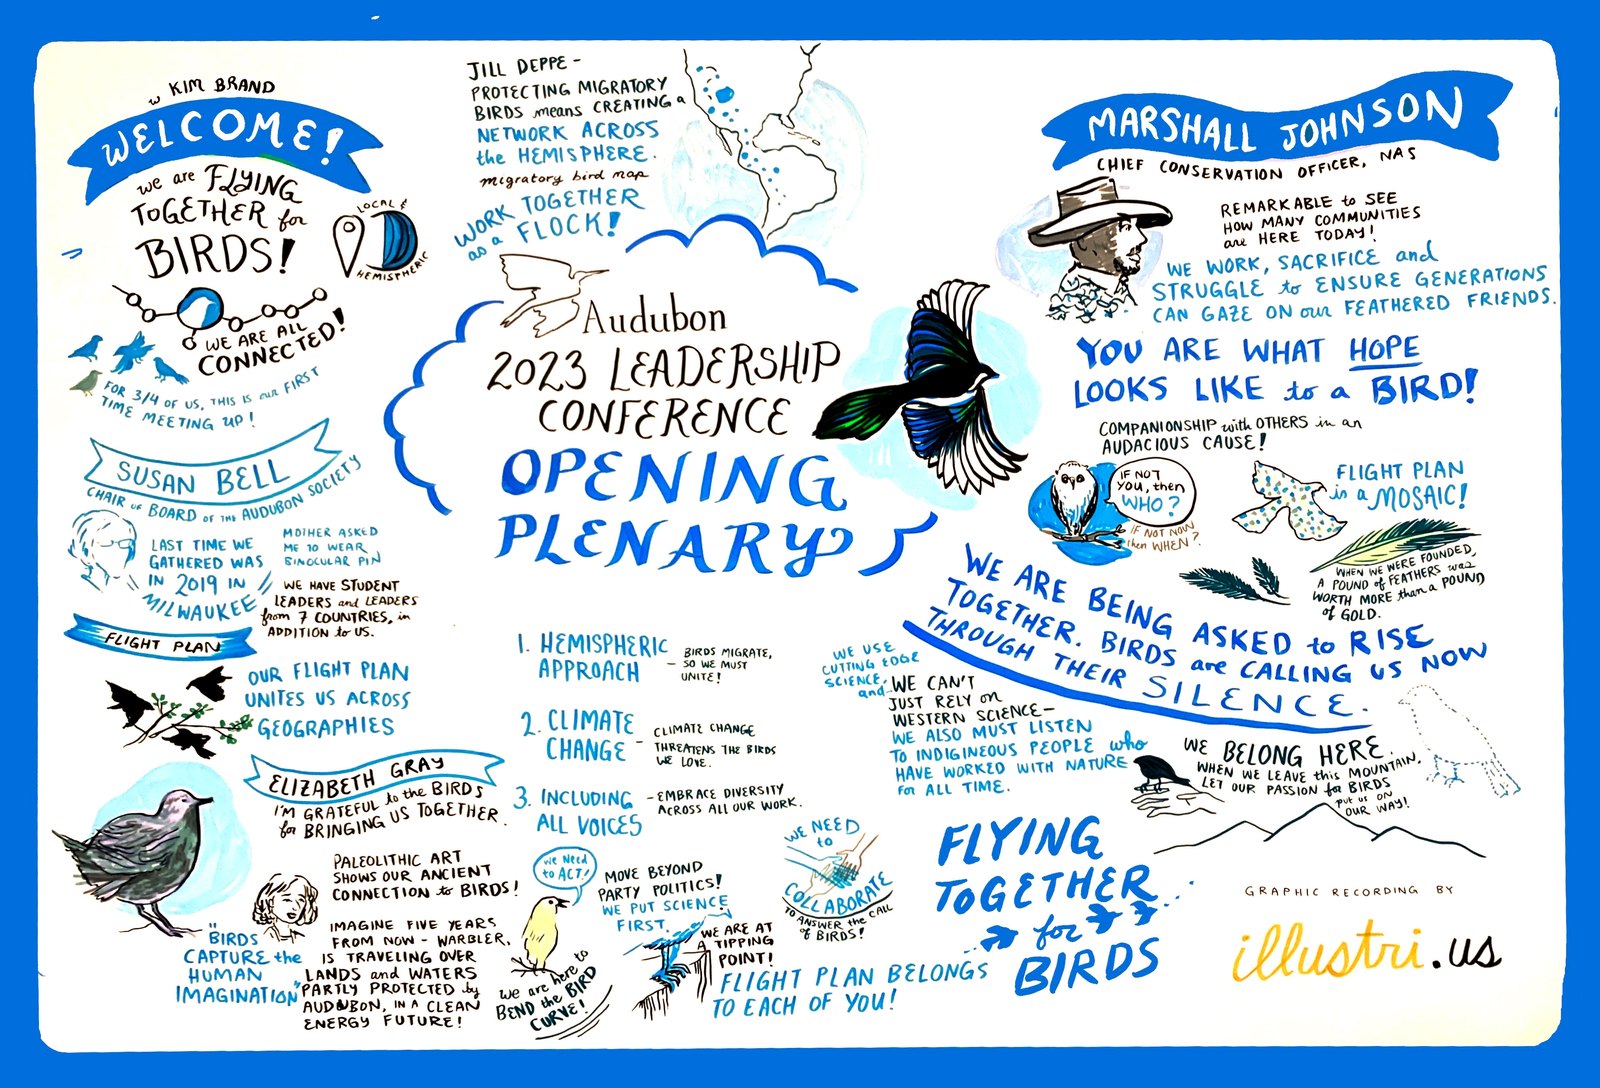 w KIM BRAND
WELCOME!
we are FLYING
TOGETHER for
BIRDS!
LOCAL &
HEMISPHERIC
WE ARE ALL
CONNECTED!
FOR 3/4 OF US, THIS IS our FIRST
TIME MEETING UP!
SUSAN BELL
CHAIR of BOARD OF THE AUDUBON SOCIETY
LAST TIME WE
GATHERED WAS
IN 2019 IN
MILWAUKEE
MOTHER ASKED
ME TO WEAR
BINOCULAR PIN
WE HAVE STUDENT
LEADERS and LEADERS
from 7 COUNTRIES, in
ADDITION to US.
FLIGHT PLAN
OUR FLIGHT PLAN
UNITES US ACROSS
GEOGRAPHIES
ELIZABETH GRAY
I'M GRATEFUL to the BIRDS
for BRINGING US TOGETHER.
PALEOLITHIC ART
SHOWS OUR ANCIENT
CONNECTION to BIRDS!
"BIRDS
CAPTURE the
HUMAN
IMAGINATION"
IMAGINE FIVE YEARS
FROM NOW - WARBLER,
IS TRAVELING OVER
LANDS and WATERS
PARTLY PROTECTED by
AUDUBON, IN A CLEAN
ENERGY FUTURE!
JILL DEPPE -
PROTECTING MIGRATORY
BIRDS means CREATING a
NETWORK ACROSS
the HEMISPHERE.
migratory bird map
WORK TOGETHER
as a FLOCK!
Audubon
2023 LEADERSHIP
CONFERENCE
OPENING
PLENARY
1. HEMISPHERIC
APPROACH
- BIRDS MIGRATE,
SO WE MUST
UNITE!
2. CLIMATE
CHANGE
- CLIMATE CHANGE
THREATENS THE BIRDS
WE LOVE.
3. INCLUDING
ALL VOICES
- EMBRACE DIVERSITY
ACROSS ALL OUR WORK.
we Need
to ACT!
we are here to
BEND the BIRD
CURVE!
MOVE BEYOND
PARTY POLITICS!
WE PUT SCIENCE
FIRST.
WE ARE AT
A TIPPING
POINT!
WE NEED
to
COLLABORATE
TO ANSWER the CALL
of BIRDS!
FLIGHT PLAN BELONGS
TO EACH OF YOU!
WE USE
CUTTING EDGE
SCIENCE,
and
WE CAN'T
JUST RELY on
WESTERN SCIENCE-
WE ALSO MUST LISTEN
TO INDIGINEOUS PEOPLE who
HAVE WORKED WITH NATURE
For ALL TIME.
MARSHALL JOHNSON
CHIEF CONSERVATION OFFICER, NAS
REMARKABLE to SEE
HOW MANY COMMUNITIES
are HERE TODAY!
WE WORK, SACRIFICE and
STRUGGLE to ENSURE GENERATIONS
CAN GAZE ON our FEATHERED FRIENDS.
YOU ARE WHAT HOPE
LOOKS LIKE to a BIRD!
COMPANIONSHIP with OTHERS in an
AUDACIOUS CAUSE!
IF NOT
YOU, then
WHO?
IF NOT NOW
then WHEN?
FLIGHT PLAN
is a MOSAIC!
WHEN WE WERE FOUNDED,
A POUND of FEATHERS was
WORTH MORE than a POUND
of GOLD.
WE ARE BEING ASKED to RISE
TOGETHER. BIRDS are CALLING US NOW
THROUGH THEIR SILENCE.
WE BELONG HERE.
WHEN WE LEAVE this MOUNTAIN,
LET OUR PASSION for BIRDS
put us on
OUR WAY!
FLYING
TOGETHER
for
BIRDS
GRAPHIC RECORDING BY
illustri.us